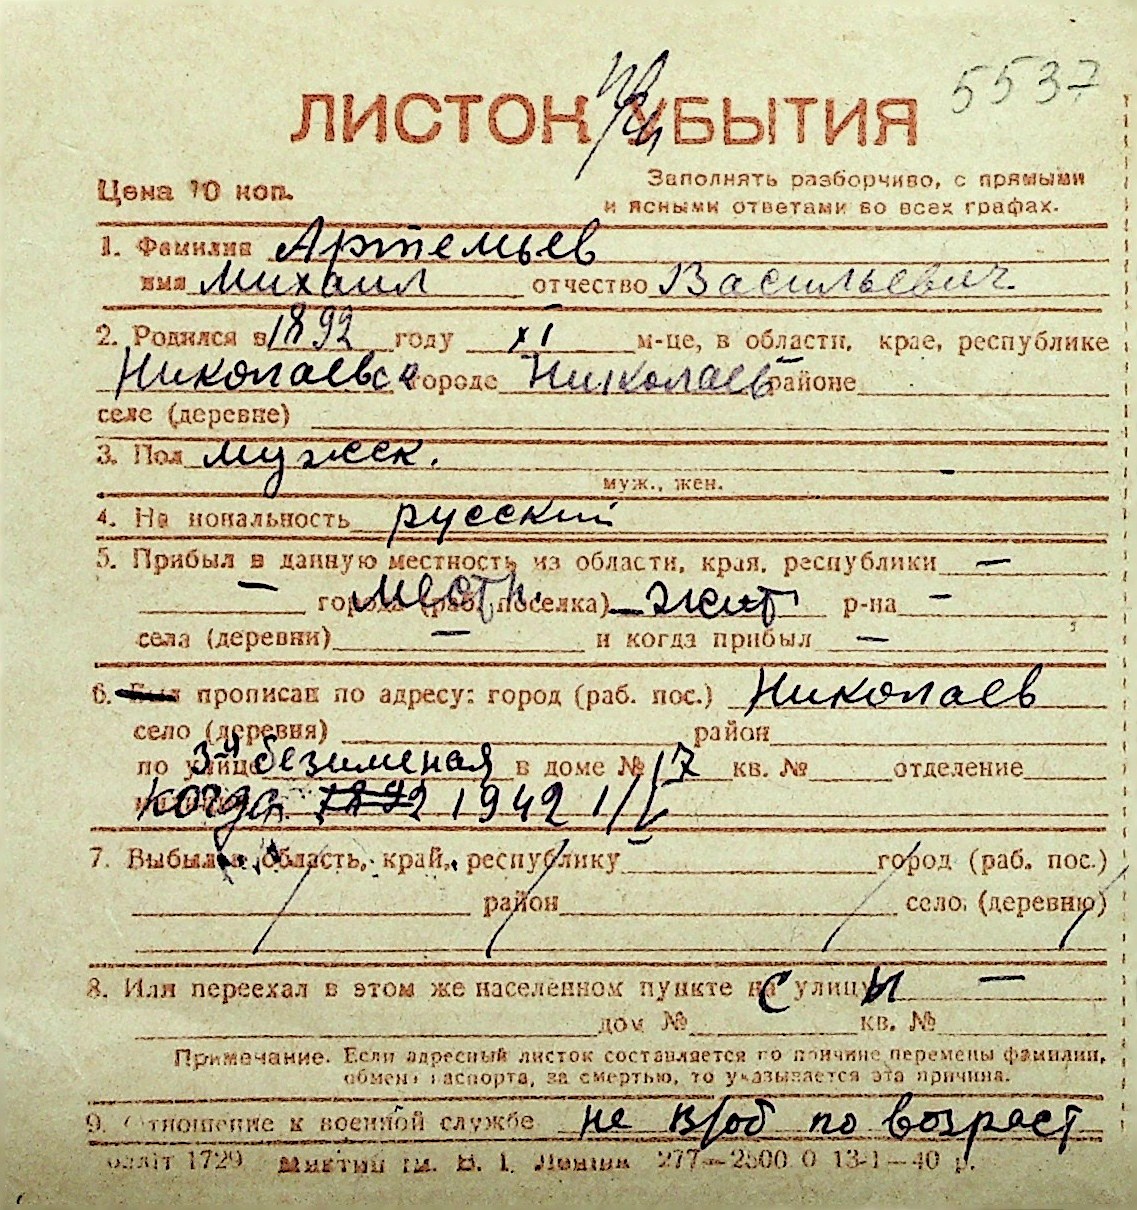 5537
ЛИСТОК УБЫТИЯ
Цена 10 коп.
Заполнять разборчиво, с прямыми
и ясными ответами во всех графах.
1. Фамилия Артемьев
имя Михаил отчество Васильевич
2. Родился в 1892 году XI м-це, в области, крае, республике
Николаевс городе Николаев районе
селе (деревне)
3. Пол мужск.
муж., жен.
4. На иональность русский
5. Прибыл в данную местность из области, края, республики —
— города (раб. поселка) местн. — жит р-на —
села (деревни) — и когда прибыл —
6. Был прописан по адресу: город (раб. пос.) Николаев
село (деревня) район
по улице 3-й безименая в доме № 17 кв. № отделение
когда 1892 1942 1/V
7. Выбыл в область, край, республику город (раб. пос.)
район село (деревню)
8. Или переехал в этом же населенном пункте с улицы —
дом № кв. №
Примечание. Если адресный листок составляется по причине перемены фамилии,
обмена паспорта, за смертью, то указывается эта причина.
9. Отношение к военной службе не в/об по возраст
облліт 1729 ім. В. І. Леніна 277—2500 0 13-1—40 р.